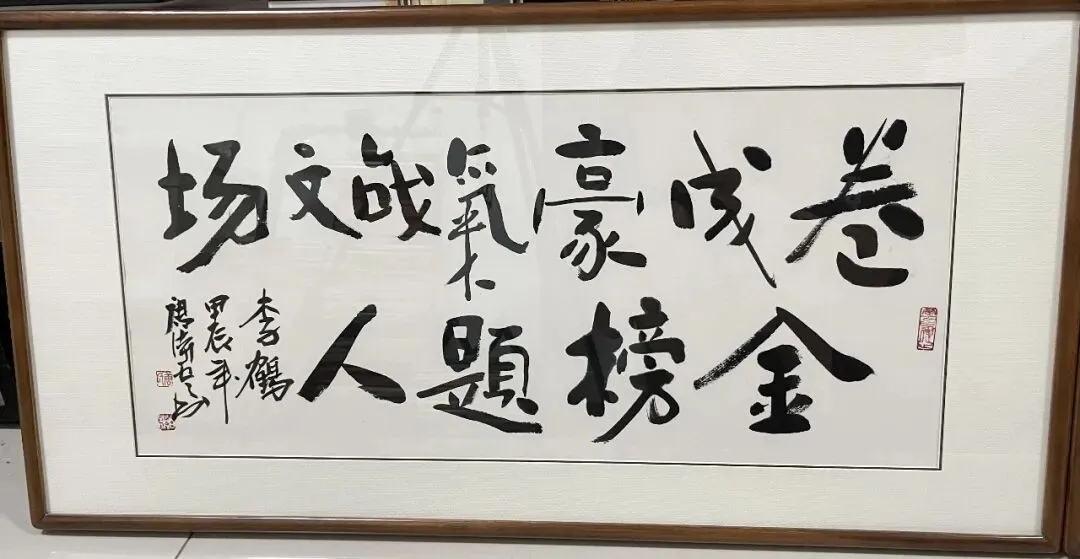 卷成豪氣战文场
金榜題人
李鶴
甲辰年